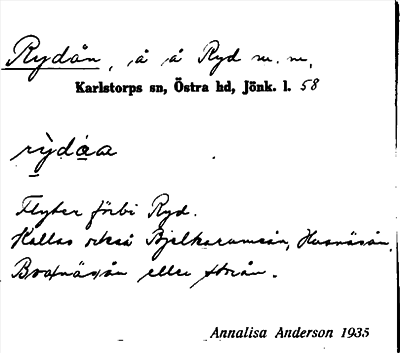 Rydån, å å Ryd m. m.
Karlstorps sn, Östra hd, Jönk. l. 58
rỳdåa
Flyter förbi Ryd.
Kallas också Bjelkarumsån, Husnäsån,
eller Storån.
Annalisa Anderson 1935